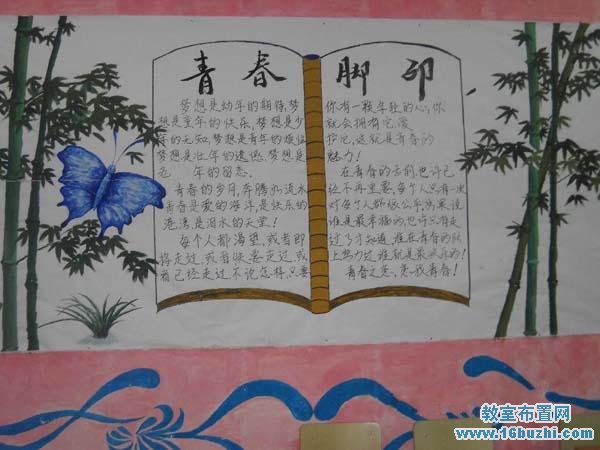 青春脚印
梦想是幼年的期待,梦
想是童年的快乐,梦想是少
年的无知,梦想是青年的
梦想是壮年的遗憾,梦想是
老 年的留恋。
青春的岁月,奔腾的流水
青春是爱的海洋是快乐的
港湾,是泪水的天堂!
每个人都渴望,或者即
将走过,或者快要走过,或
者已经走过不论怎样,只要
你有一颗年轻的心,你
就会拥有它,
护它,这就是青春的
魅力!
在青春的
经不再重要,每个人只有一次
对每个人都很公平,如果说
谁是最幸福的,也许只有走
过了才知道,谁在青春的
上努力过,谁就是最快乐的!
青春之
教室布置网
www.16buzhi.com